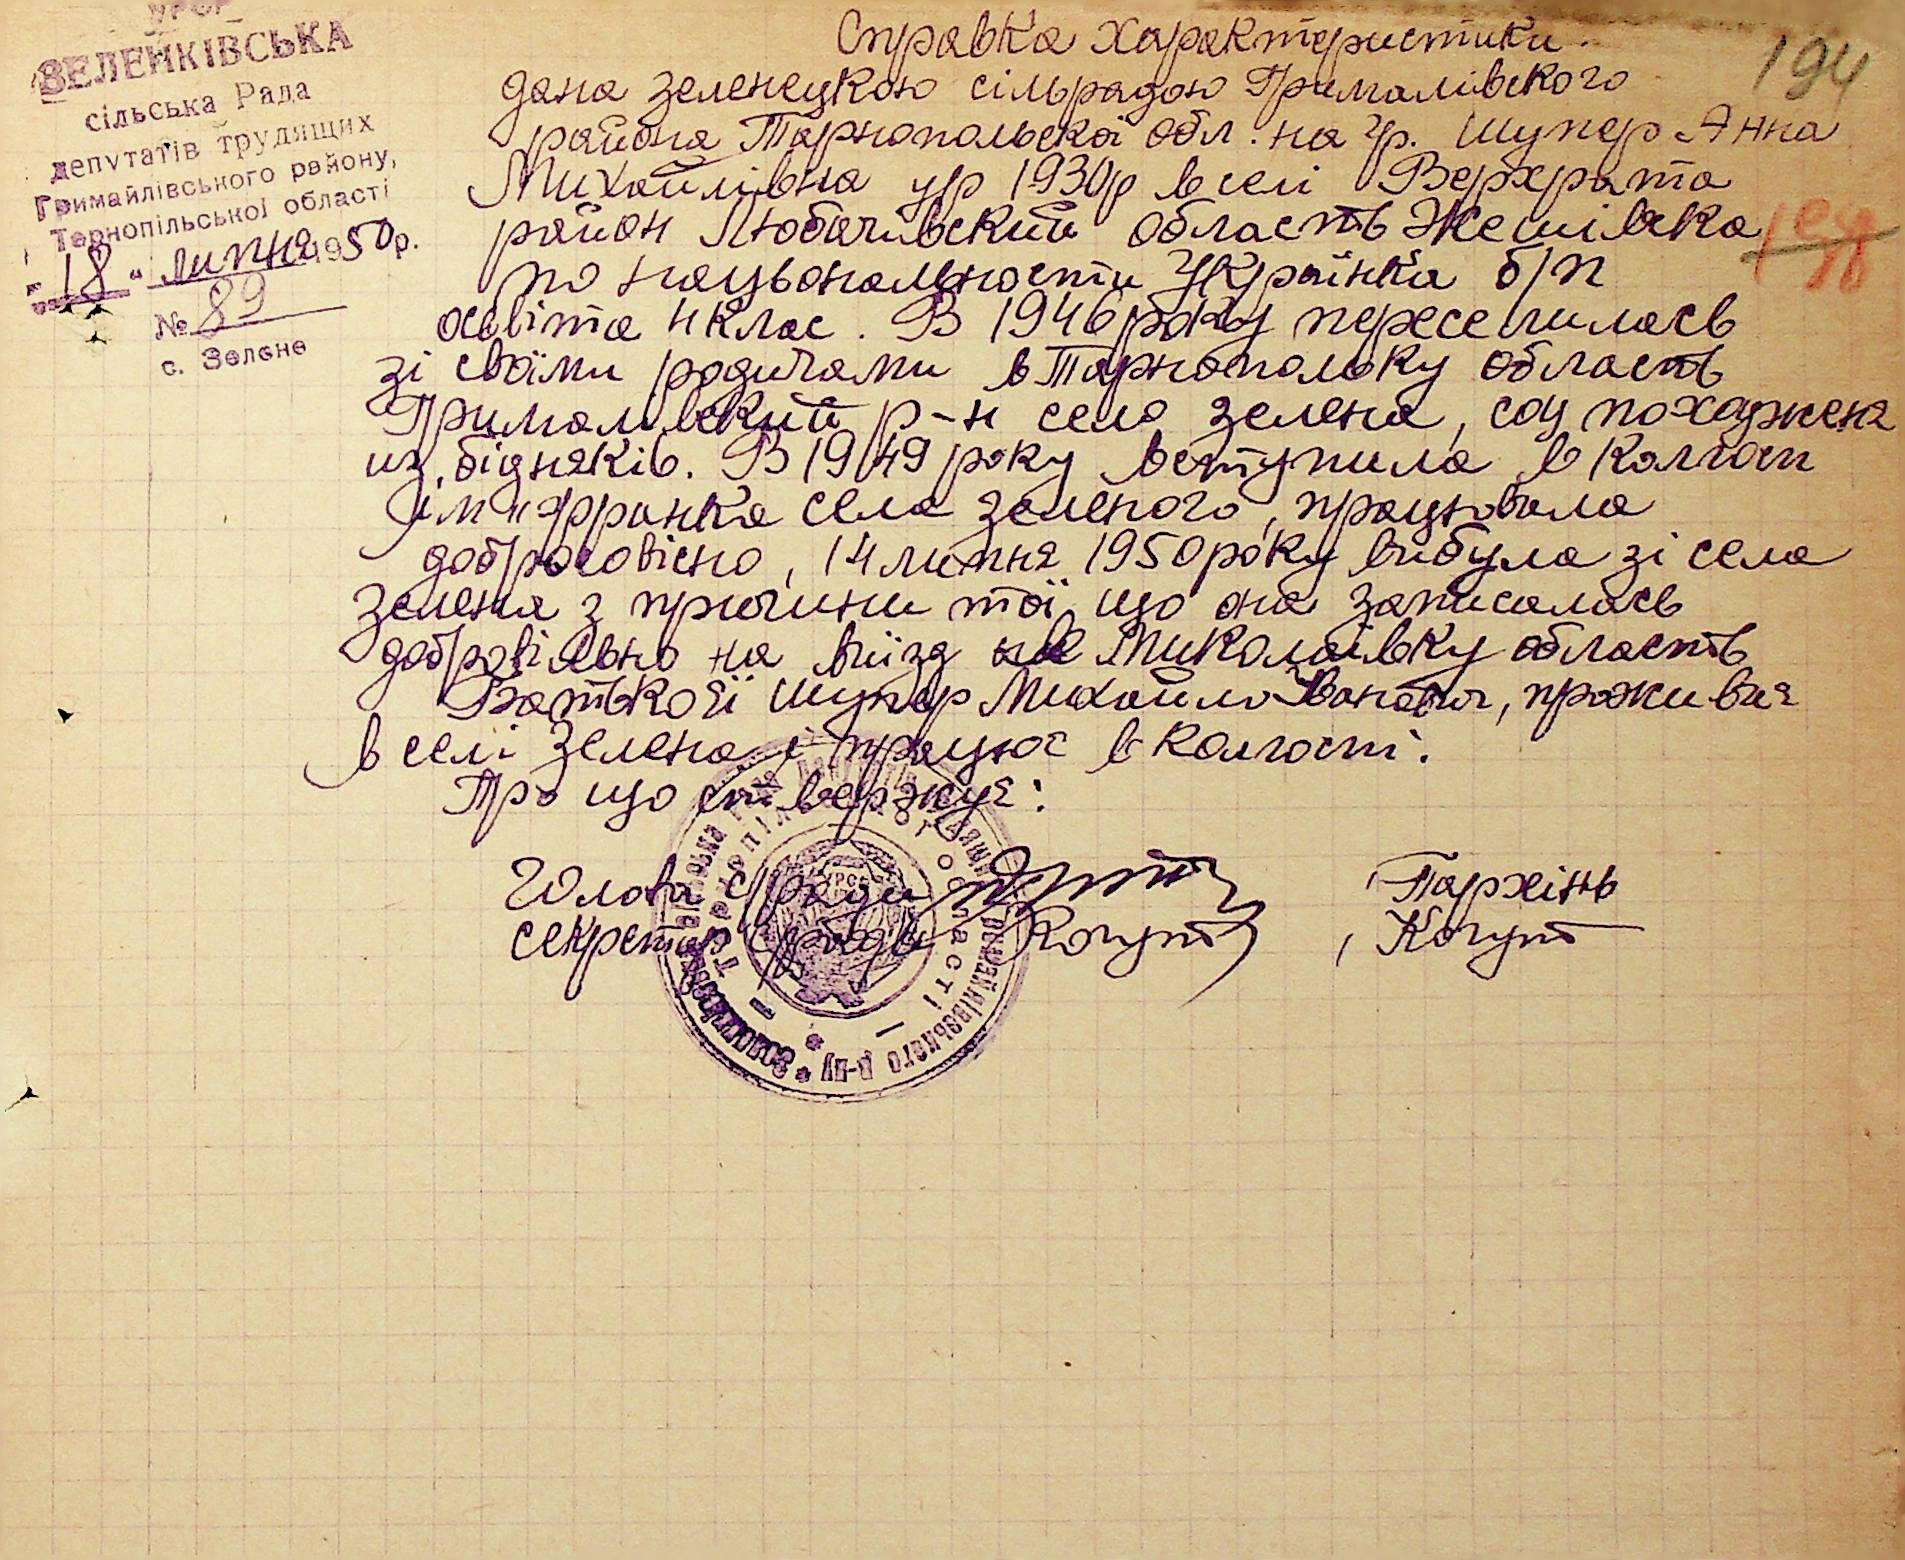 УРСР
ЗЕЛЕНКІВСЬКА
сільська Рада
депутатів трудящих
Гримайлівського району,
Тернопільської області
"18" липня 1950 р.
№ 89
с. Зелене
194
Справка характеристики.
дана зеленецкою сільрадою Грималівского
района Тарнопольскої обл. на гр. Шупер Анна
Михайлівна ур 1930р в селі Верхрата
район Любачівский область Жешівска
по націоналности Українка б/п
освіта 4 клас. В 1946 року переселилась
зі своїми родичами в Тарнопольку область
Грималівский р-н село зелена, соц походженя
из бідняків. В 1949 року вступила в колгосп
ім Франка села зеленого, працювала
добросовісно, 14 липня 1950 року вибула зі села
Зелена з причини тої що она записалась
добровільно на виїзд на Миколаївку область
Батько її Шупер Михайло Іванович, проживає
в селі Зелена і працює в колгоспі.
Про що ствержує:
Голова с/ради Пархінь
секретар с/ради Когут , Когут